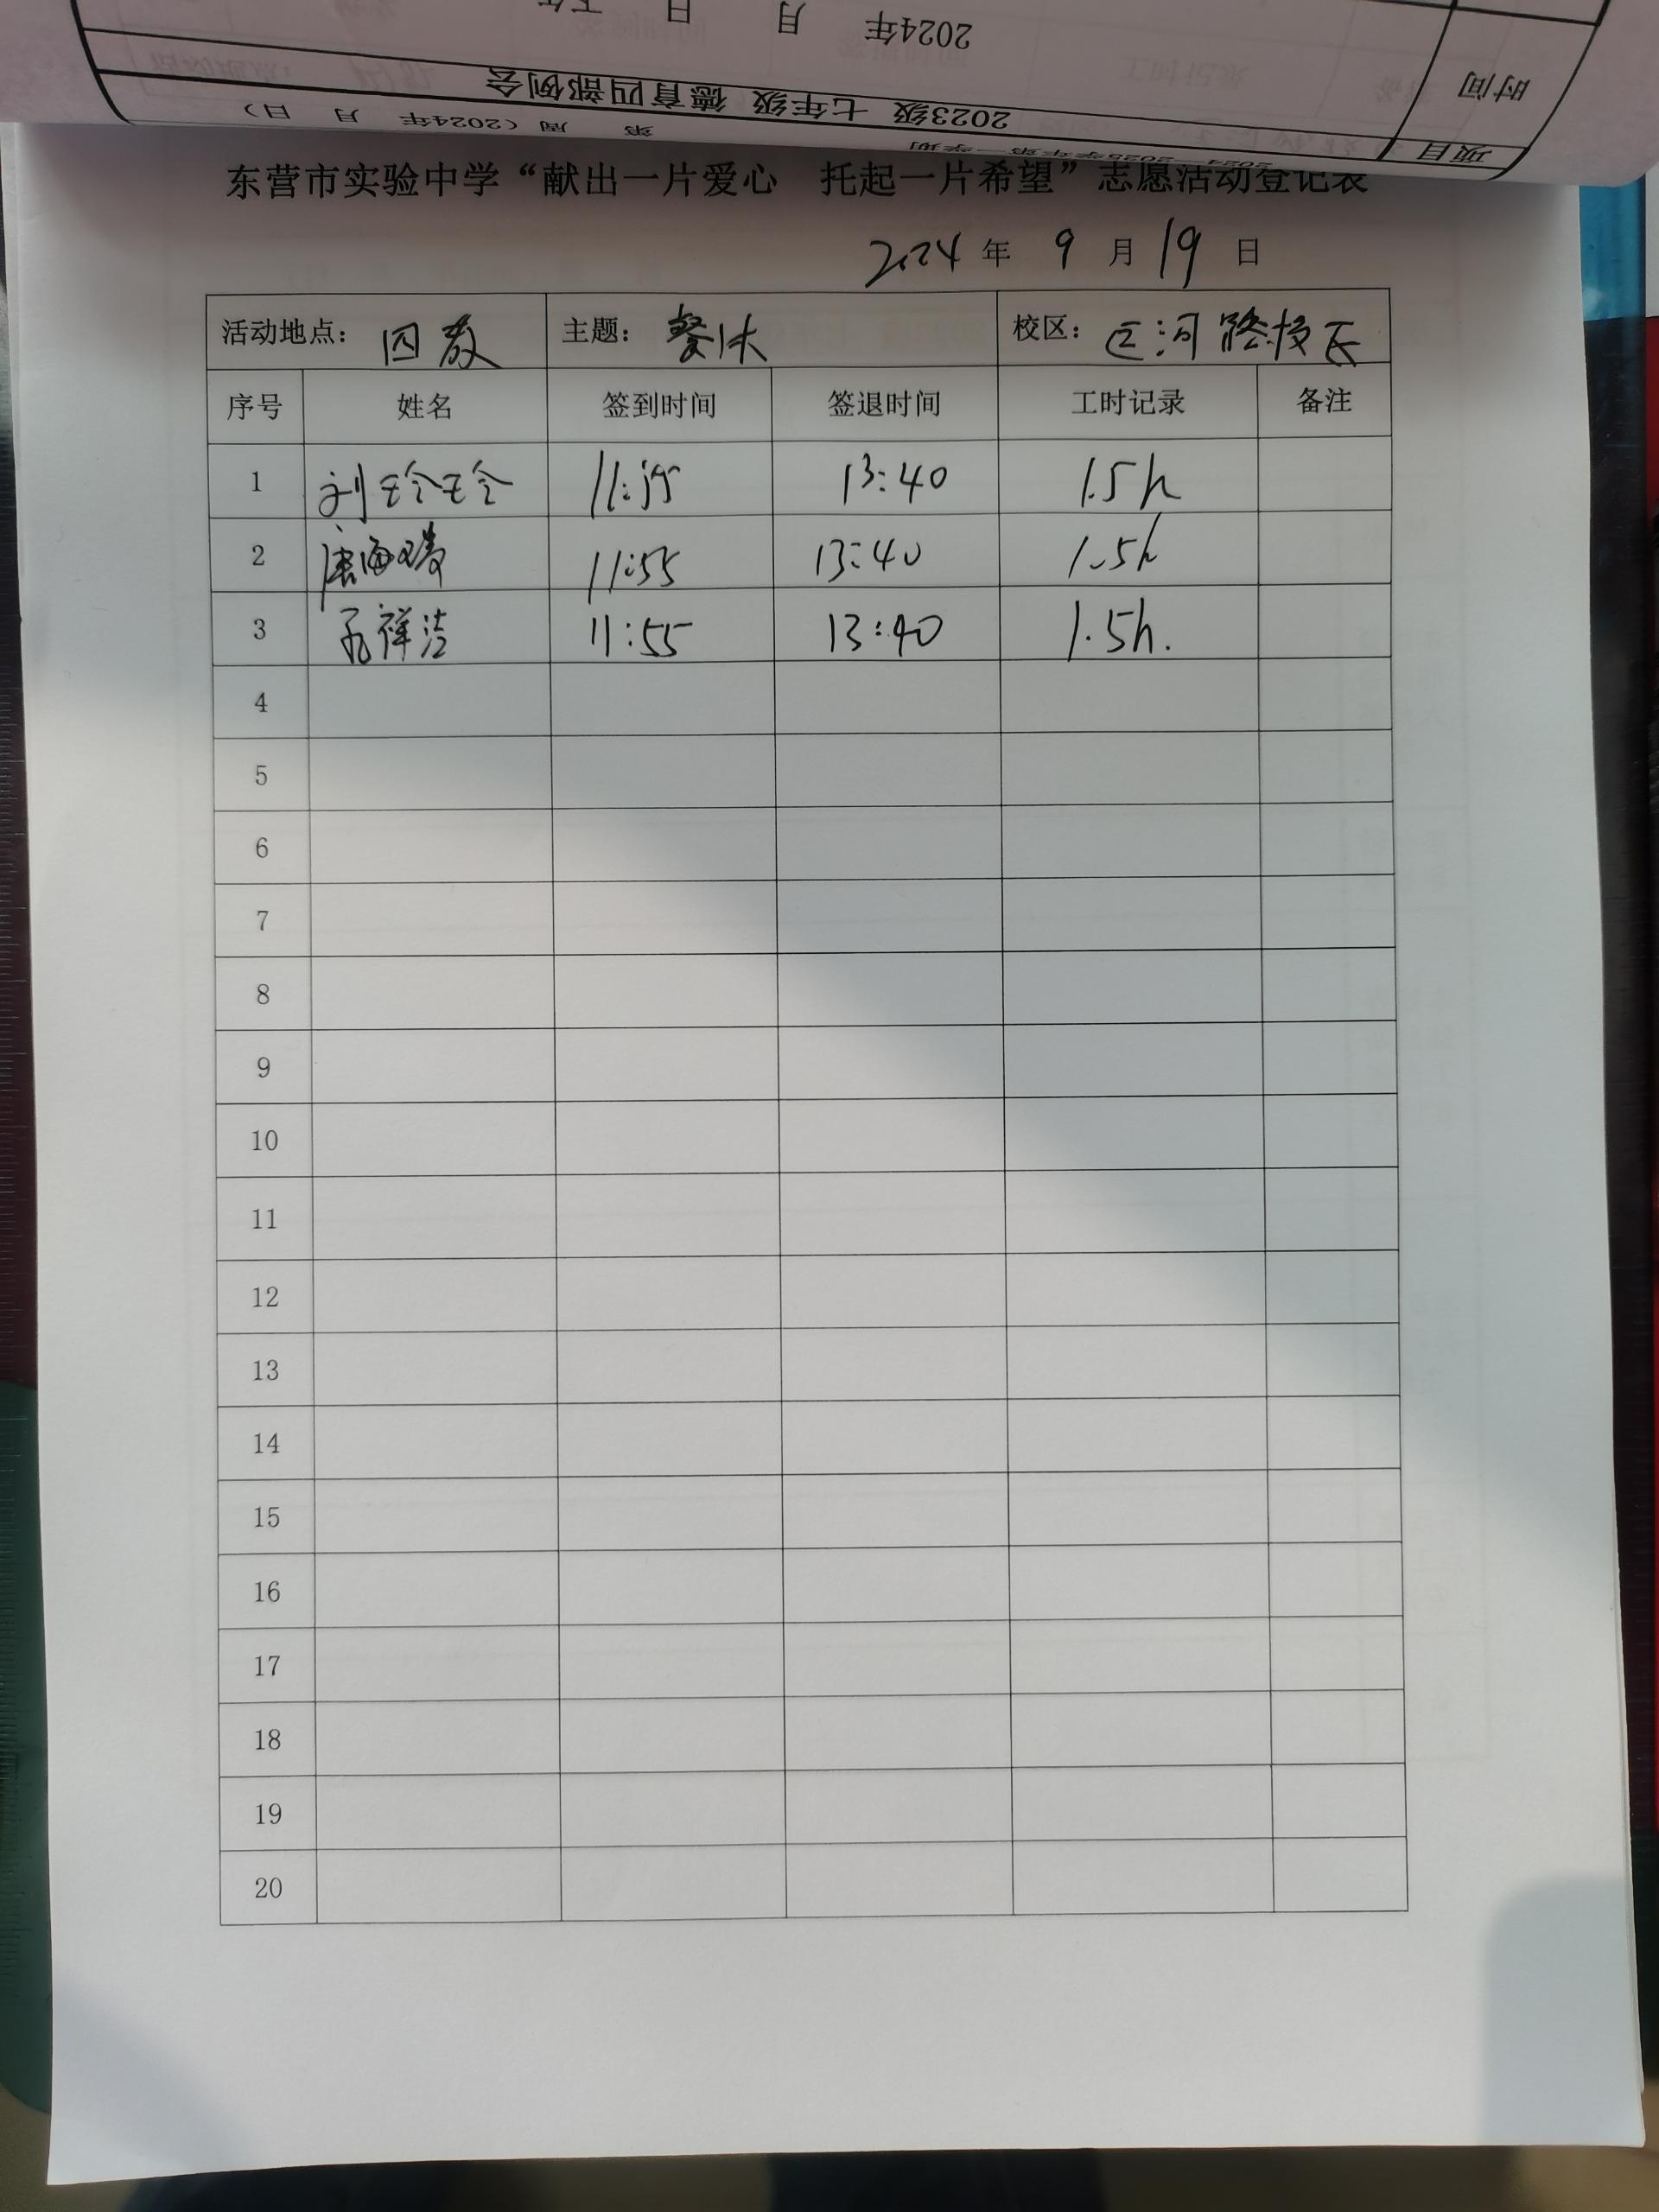 2024年 月 日 下午
时间
2023级 七年级 德育四部例会
第 周（2024年 月 日）
项目
东营市实验中学“献出一片爱心 托起一片希望”志愿活动登记表
2024 年 9 月 19 日
活动地点: 四教 主题: 餐休 校区:
序号 姓名 签到时间 签退时间 工时记录 备注
1 刘玲玲 11:55 13:40 1.5h
2 11:55 13:40 1.5h
3 祥洁 11:55 13:40 1.5h.
4
5
6
7
8
9
10
11
12
13
14
15
16
17
18
19
20